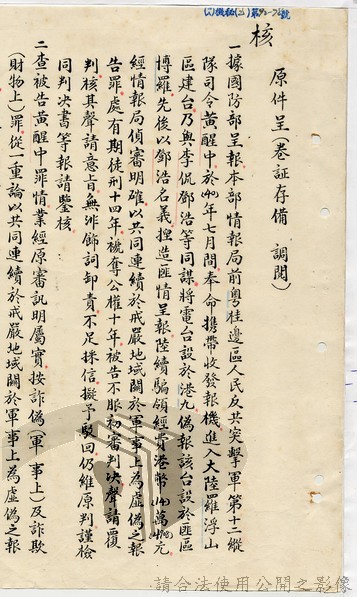 原件呈(卷証存備 調閱)
核
一據國防部呈報本部情報局前粵桂邊區人民反共突擊軍第十二縱
隊司令黃醒中於(40)年七月間奉命携帶收發報機進入大陸羅浮山
區建台乃與李侃鄧浩等同謀將電台設於港九偽報該台設於匪區
博羅先後以鄧浩名義捏造匪情呈報陸續騙領經費港幣
元
經情報局偵審明確以共同連續於戒嚴地域關於軍事上為虛偽之報
告罪處有期徒刑十四年褫奪公權十年被告不服初審判决聲請覆
判核其聲請意旨無非飾詞卸責不足採信擬予駁回仍維原判謹檢
同判决書等報請鑒核
二查被告黃醒中罪情業經原審訊明屬實按詐偽(軍事上)及詐欺
(財物上)罪從一重論以共同連續於戒嚴地域關於軍事上為虛偽之報
請合法使用公開之影像